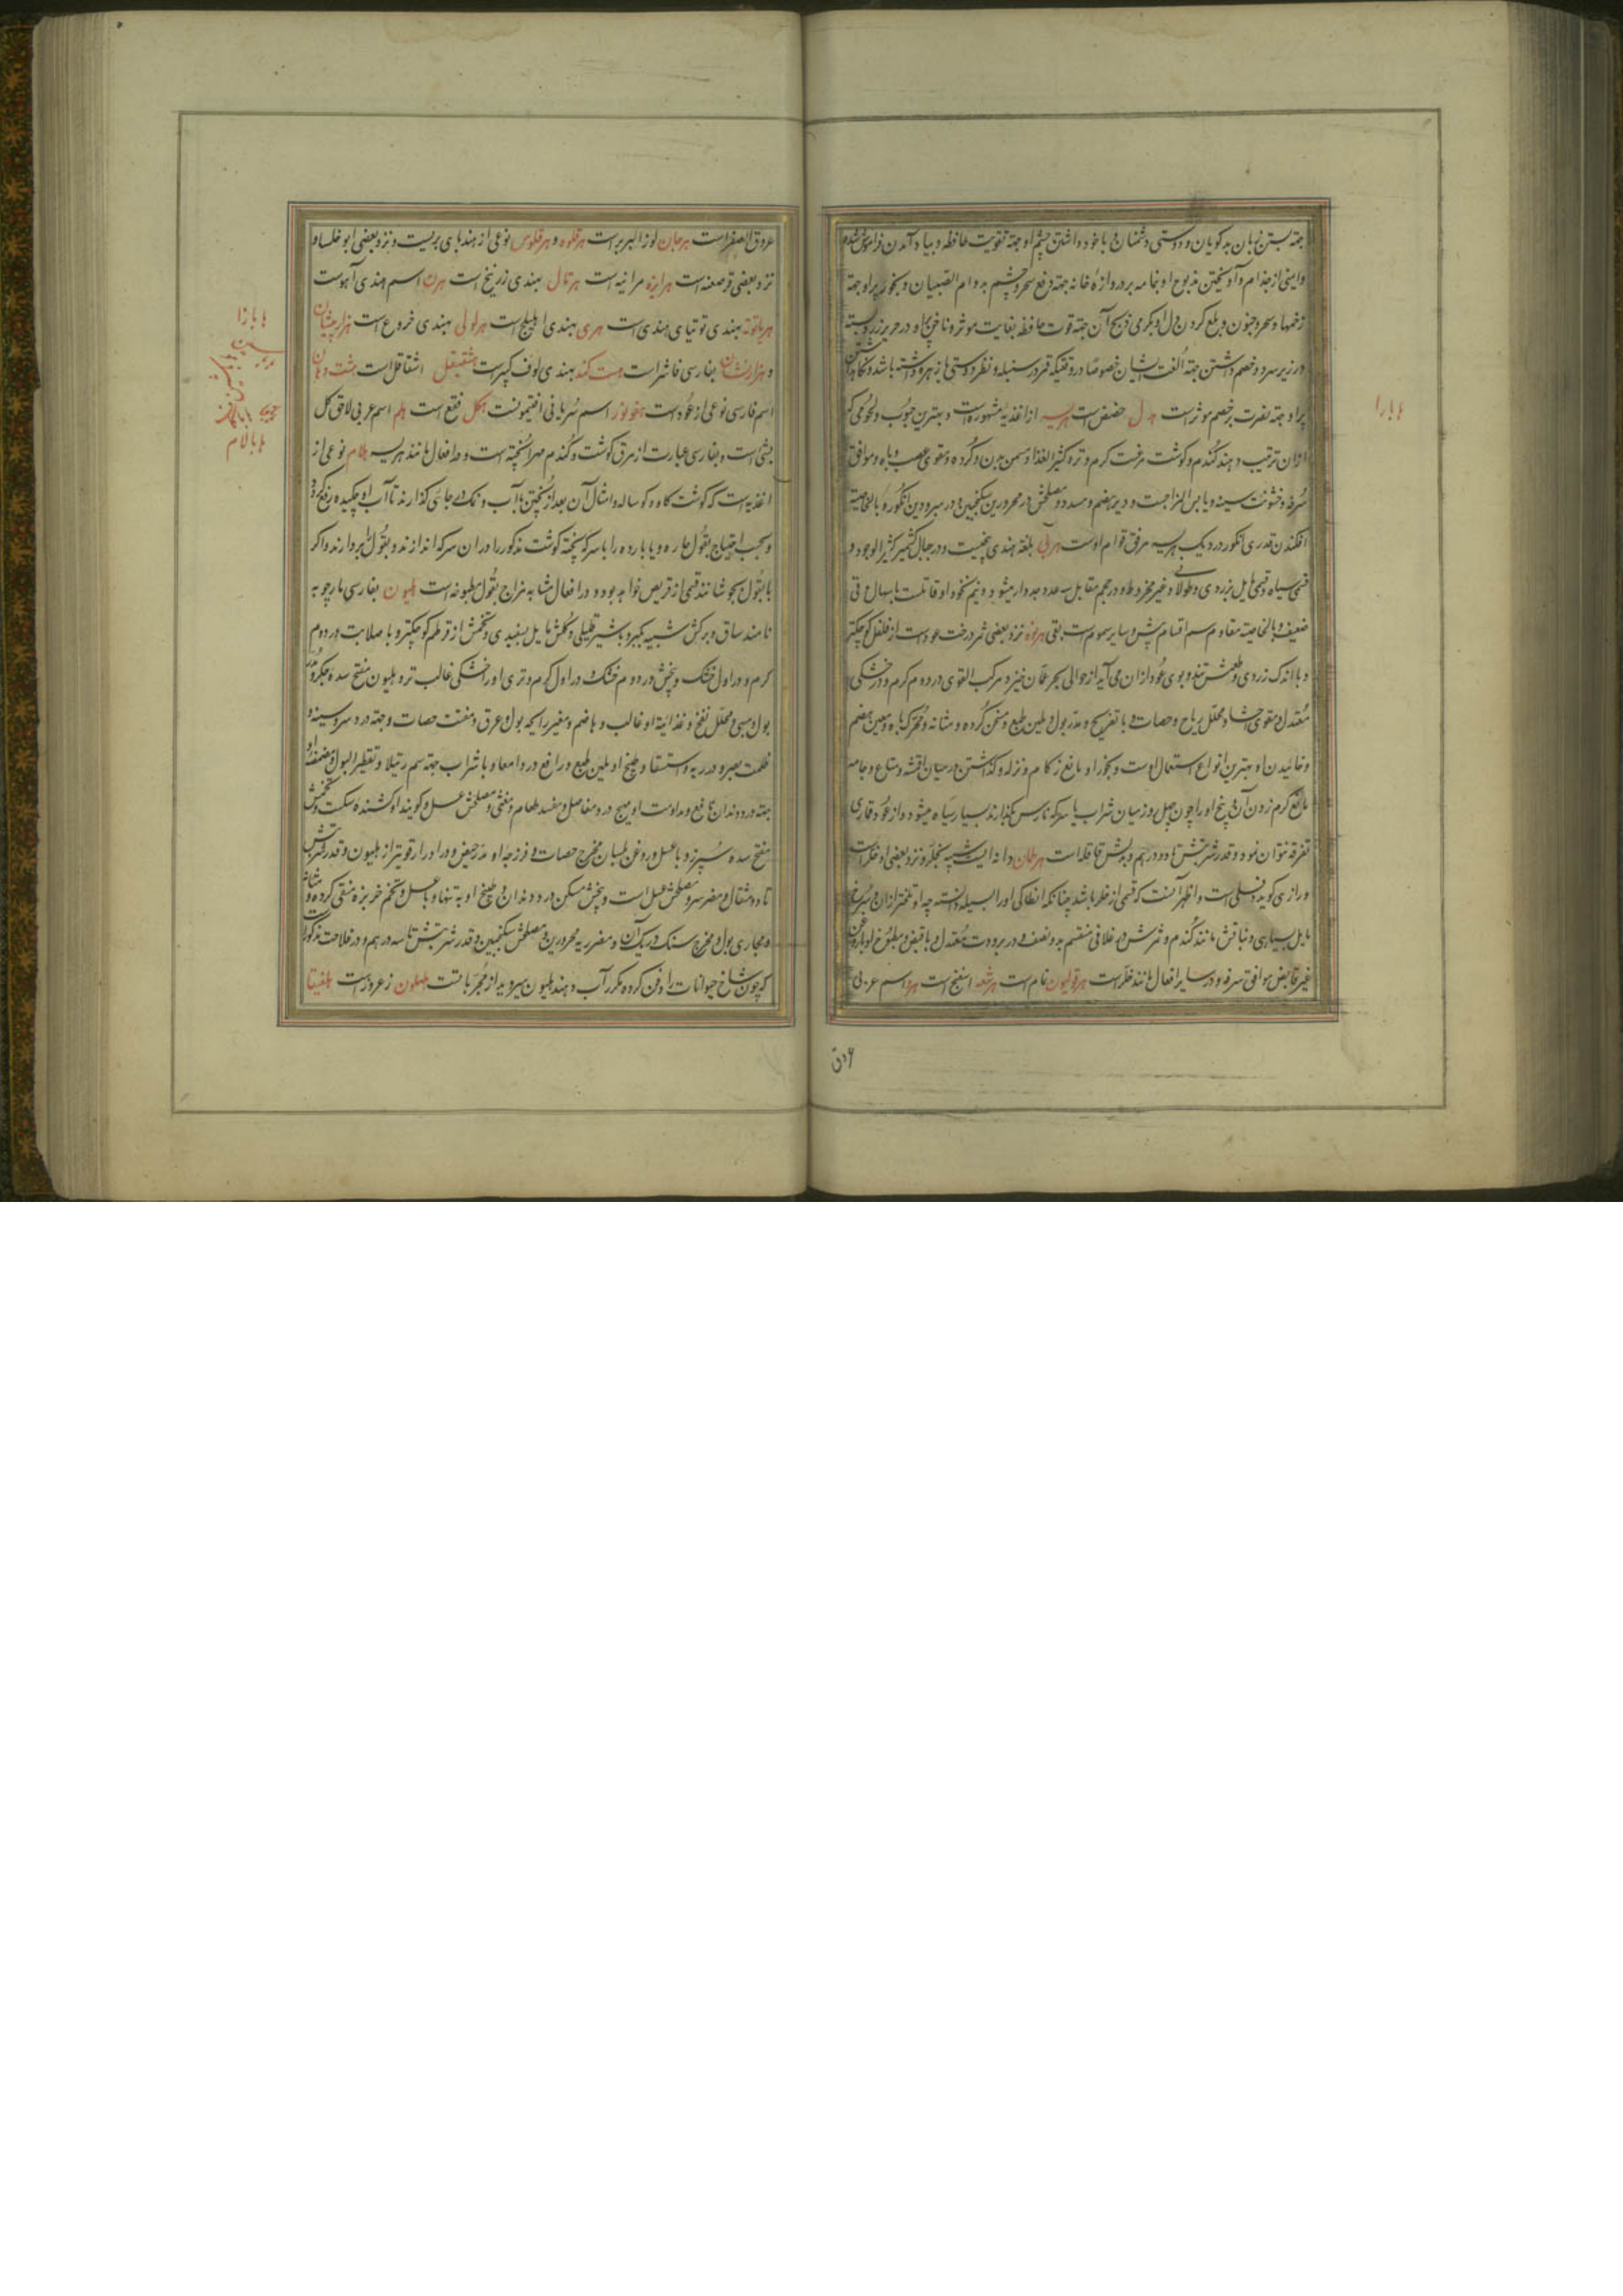 جهته بستن زبان بدکویان و دوستی دشمنان و باخود داشتن چشم او جهته تقویت حافظه و بیاد آمدن فراموش شده
وایمنی از جذام و آویختن مذبوح او بتمامه بر دروازهٔ خانه جهته دفع سحر و چشم بد و ام الصبیان و بخور پر او جهته
زخمها و سحر و جنون و بلع کردن دل او بکرمی ذبیح آن جهته قوت حافظه بغایت موثر و ناخن او در حریر زرد بسته
در زیر سر دو خصم داشتن جهته الفت ایشان خصوصا در وقتیکه قمر در سنبله و نظر دوستی با زهره داشته باشد و نکاه داشتن
پر او جهته نصرت بر خصم موثر است هدل حضض است هریسه از اغذیه مشهوره است و بهترین حبوب و لحومی که
ازان ترتیب دهند کندم و کوشت مرغست کرم و تر و کثیر الغذا و مسمن بدن و کرده و مقوی عصب و باه و موافق
سرفه و خشونت سینه و یابس المزاجست و دیرهضم و مسدد و مصلحش در محرورین سکنجبین و در مبرودین انکور و بالخاصیة
افکندن قدری انکور در دیک هریسه مرقق قوام اوست هرلی بلغة هندی بیخیست و در جبال کشمیر کثیر الوجود و
قسمی سیاه و قسمی مایل بزردی و طولانی و غیر مخروط و در حجم مقابل سه عدد جدوار میشود و نیم نخود او قاتلست باسهال و قی
ضعیف و بالخاصیة مقاوم سم اقسام بیش و سایر سموم است بقی هرنوه نزد بعضی ثمر درخت عود است از فلفل کوچکتر
و با اندک زردی و طعمش تند و بوی عود ازان می آید از حوالی بحر عمان خیزد مرکب القوی در دوم کرم و در خشکی
معتدل و مقوی احشا و محلل ریاح و حصات و با تفریح و مدر بول و ملین طبع و مسخن کرده و مثانه و محرک باه و معین هضم
و خائیدن او بهترین انواع استعمال اوست و بخور او نافع زکام و نزله و کذاشتن در میان اقمشه و متاع و جامه
مانع کرم زدن آن و بیخ او را چون چهل روز میان شراب یا سرکه نارس بکذارند بسیار سیاه میشود و از عود قماری
تفرقه نتوان نمود و قدر شربتش تا دو درهم و بدلش قاقله است هرطمان دانه ایست شبیه بجلبان و نزد بعضی او خلر است
و رازی کوید و اظهر آنست که قسمی از خلر باشد چنانکه انطاکی او را بسیله دانسته چه او تلختر ازان و بسرخی
مایل بسیاهی و نباتش مانند کندم و ثمرش در غلافی منقسم بدو نصف و در برودت معتدل و با قبض و مطبوخ او با روغن
غیر قابض موافق سرفه و در سایر افعال مانند خلر است هرقولیون نمام است هرشفه اسفنج است هرد اسم عربی
دق
هارا
عروق الصفر است هرجان لوز البربر است هرقلوه و هرقلوس نوعی از هندبای بریست و نزد بعضی ابو خلسا و
نزد بعضی قرصعنه است هرانوه مرانیه است هرتال بهندی زرنیخ است هرن اسم هندی آهوست
هریاتوته بهندی توتیای هندی است هری بهندی اهلیلج است هرلولی بهندی خروع است هزارچشان
و هزارافشان بفارسی فاشرا است هست کند بهندی لوف کبیر است هشقیقل اشقاقل است هشت دهان
اسم فارسی نوعی از عود است هفولوز اسم سریانی افتیمونست هکل فقع است هلم اسم عربی لاذق کل
بستی است و بفارسی عبارت از مرق کوشت و کندم مهرا پخته است و در افعال مانند هریسه هلام نوعی از
اغذیه است که کوشت کاو و کوساله و امثال آن بعد از پختن با آب و نمک در جائی کذارند تا آب او چکیده رفع کردد و
بحسب احتیاج بقول حاره و یا بارده را با سرکه پخته کوشت مذکور را دران سرکه اندازند و بقول را بردارند و اکر
با بقول بجوشانند قسمی از قریص خواهد بود و در افعال مشابه مزاج بقول مطبوخه است هلیون بفارسی مارچوبه
نامند ساق و برکش شبیه بکبر و با شیر قلیلی و کلش مایل بسفیدی و تخمش از قرطم کوچکتر و با صلابت در دوم
کرم و در اول خشک و بیخش در دوم خشک و در اول کرم و تری او بر خشکی غالب تر و هلیون مفتح سده جکر و مدر
بول و مبهی و محلل نفخ و غذائیة او غالب و هاضم و مغیر رائحه بول و عرق و مفتت حصات و جهته درد سر و سینه و
ظلمت بصر و درد ریه و استسقا و طبیخ او ملین طبع و رافع درد امعا و با شراب جهته سم رتیلا و تقطیر البول و مضمضه او
جهته درد دندان نافع و مداومت او مهیج درد مفاصل و مفسد طعام و مغثی و مصلحش عسل و کویند او کشنده سک است و تخمش
مفتح سده سپرز و با عسل و روغن بلسان مخرج حصات و فرزجه او مدر حیض و در ادرار قویتر از هلیون و قدر شربتش
تا دو مثقال و مضر سر و مصلحش عسل است و بیخش مسکن درد دندان و طبیخ او به تنها و با عسل و تخم خربزه منقی کرده و مثانه
و مجاری بول و مخرج سنک و ریک آن و مضر ریه محرورین و مصلحش سکنجبین و قدر شربتش تا سه درهم و در فلاحت مذکور است
که چون شاخ حیوانات را دفن کرده مکرر آب دهند هلیون میروید از مجربا تست هلهلون زعرور است هلغیتا
هابازا
هابالام